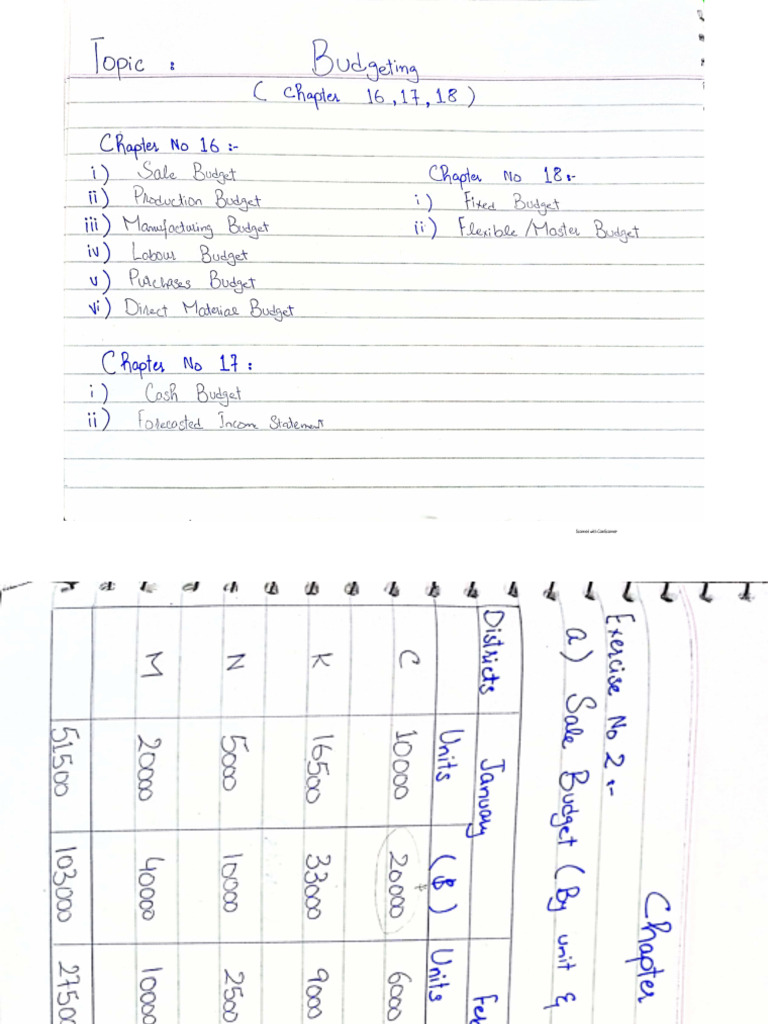 Topic : Budgeting
( Chapter 16, 17, 18 )
Chapter No 16 :-
i) Sale Budget
ii) Production Budget
iii) Manufacturing Budget
iv) Labour Budget
v) Purchases Budget
vi) Direct Material Budget
Chapter No 18:-
i) Fixed Budget
ii) Flexible/Master Budget
Chapter No 17 :
i) Cash Budget
ii) Forecasted Income Statement
Scanned with CamScanner
Chapter
Exercise No 2 :-
a) Sale Budget ( By unit &
Districts January Feb
Units ($) Units
C 10000 20000 6000
K 16500 33000 9000
N 5000 10000 2500
M 20000 40000 10000
51500 103000 27500